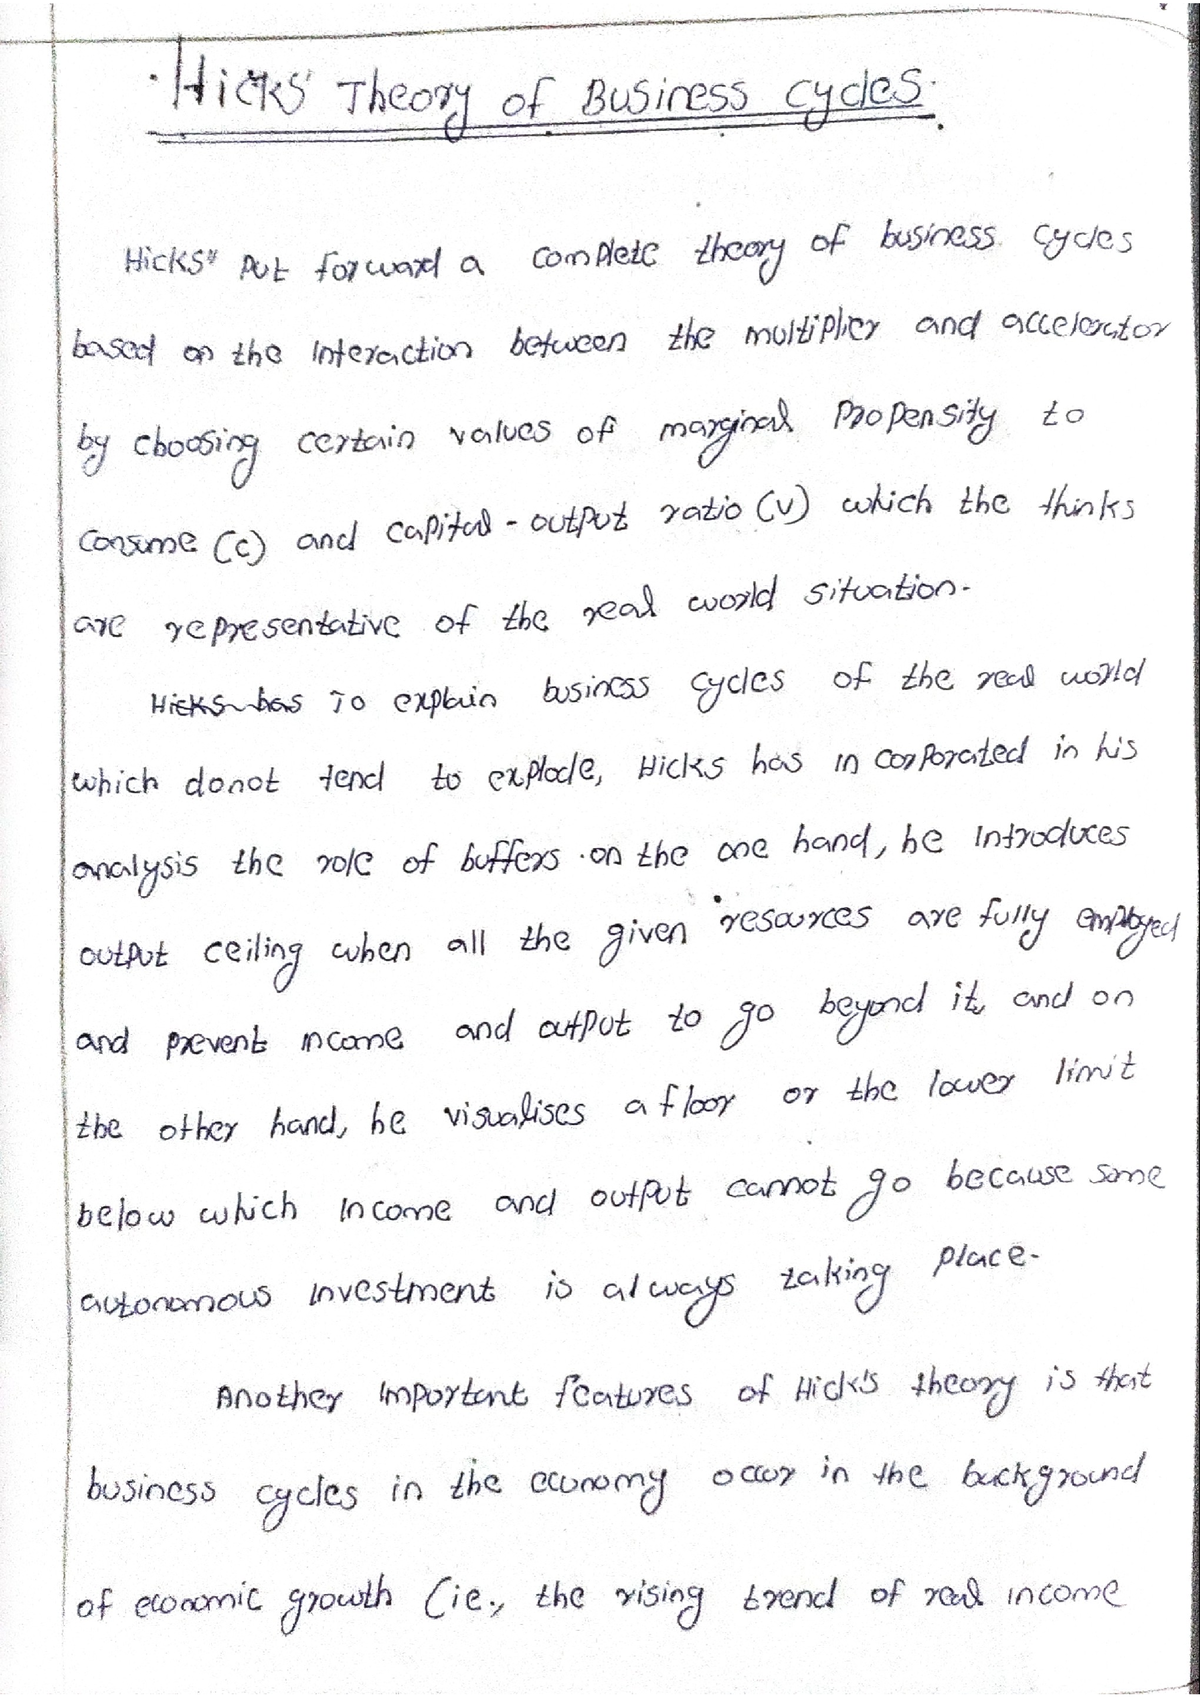 Hicks' Theory of Business Cycles.
Hicks" Put forward a complete theory of business cycles
based on the Interaction between the multiplier and accelerator
by choosing certain values of marginal Propensity to
Consume (c) and capital - output ratio (v) which the thinks
are representative of the real world situation.
Hicks has To explain business cycles of the real world
which donot tend to explode, Hicks has in corporated in his
analysis the role of buffers. on the one hand, he Introduces
output ceiling when all the given resources are fully employed
and prevent income and output to go beyond it, and on
the other hand, he visualises a floor or the lower limit
below which Income and output cannot go because some
autonomous Investment is always taking place.
Another Important features of Hick's theory is that
business cycles in the economy occur in the background
of economic growth (ie., the rising trend of real income